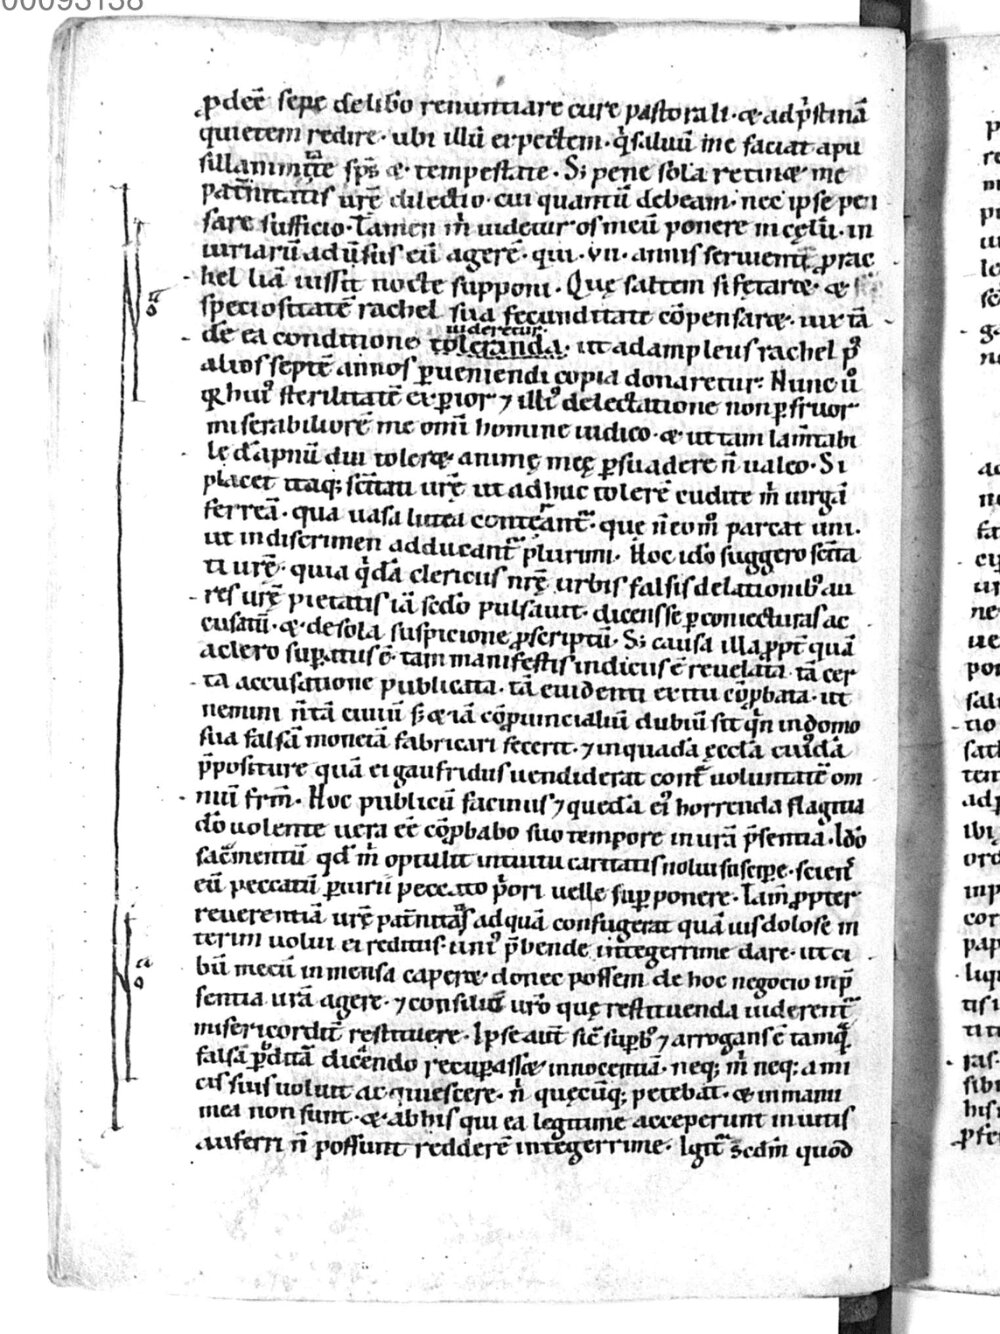 00093138
ꝓdeẽ sepe delib̾o renuntiare cure pastorali · ⁊ ad p̾stinã
quietem redire · ubi illũ expectem · q̾ saluũ me faciat a pu
sillanimitate sp̃s ⁊ tempestate · Sȝ pene sola retinet me
pat̾nitatis ur̃e dilectio · cui quantũ debeam · nec ipse pen
sare sufficio · Tamen m̾ uidetur os meũ ponere in cęlũ · in
iuriarũ adũsus eũ agerẽ · qui · vii · annis seruientẽ ꝓ rac
hel liã iussit nocte supponi · Quę saltem si fetaret ⁊
speciositatẽ rachel sua fecunditate cõpensaret · iuxtã
de ea conditione toleranda · ut ad ampleus rachel p̾
uideretur
alios septẽ annos ꝑueniendi copia donaretur · Nunc ũ
q̃ hui᾽ sterilitatẽ exꝑior ⁊ illi᾽ delectatione non ꝑfruor
miserabiliorẽ me om̃i homine iudico · ⁊ ut tam lam̃tabi
le dãpnũ diu toleret animę meę ꝑsuadere ñ ualeo · Si
placet itaqȝ sc̃itati ur̃ę ut adhuc tolerẽ cudite m̾ uirgã
ferreã · qua uasa lutea conteränt᾽ · quę ñ eom̾ parcat uni ·
ut in discrimen adducant᾽ plurimi · Hoc ido̾ suggero sc̃ita
ti ur̃ę · quia q̾dã clericus nr̃ę urbis falsis delationib᾽ au
res ur̃ę pietatis iã sedo̾ pulsauit · dicens se ꝑ coniecturas ac
cusatũ · ⁊ de sola suspicione ꝓscriptũ · Sȝ causa illa ꝓpt̾ quã
a clero suꝑatus ẽ · tam manifestis indiciis ẽ reuelata tã cer
ta accusatione publicata · tã euidenti exitu cõꝓbata · ut
nemini ñ tã ciuiũ sȝ ⁊ iã cõꝓuincialiũ dubiũ sit q̾n in domo
sua falsã monetã fabricari fecerit · ⁊ in quadã ęccl̃a cui᾽dã
p̃positure quã ei gaufridus uendiderat cont̾ uoluntatẽ om
niũ fr̃m · Hoc publicũ facinus ⁊ quedã ei᾽ horrenda flagitia
do̾ uolente uera eẽ cõꝓbabo suo tempore in urã p̃sentiã · Ido̾
sac̾mentũ qd̾ m̾ optulit intuitu caritatis nolui suscipe · sciens
eũ peccatũ ꝑiurii peccato p̾ori uelle supponere · Tam̃ ꝓpter
reuerentiã ur̃ę pat̾nitatis ad quã confugerat quãuis dolose in
terim uolui ei reditus uni᾽ p̃bende integerrime dare · ut ci
bũ mecũ in mensa caperet donec possem de hoc negocio in p̃
sentia urã agere · ⁊ consiliũ ur̃o quę restituenda uiderent᾽
misericordit̾ restituere · Ipse aut̃ sic̾ supb᾽ ⁊ arrogans ẽ tamq̃
falsã ꝑditã dicendo recuꝑasset innocentiã · neqȝ m̾ neqȝ ami
cis suis uoluit acquiescere · n̾ quęcũqȝ petebat · ⁊ in manu
mea non sunt · ⁊ ab his qui ea legitime acceperunt inuitis
auferri ñ possunt redderẽ integerrime · Igit᾽ sed̾m quod